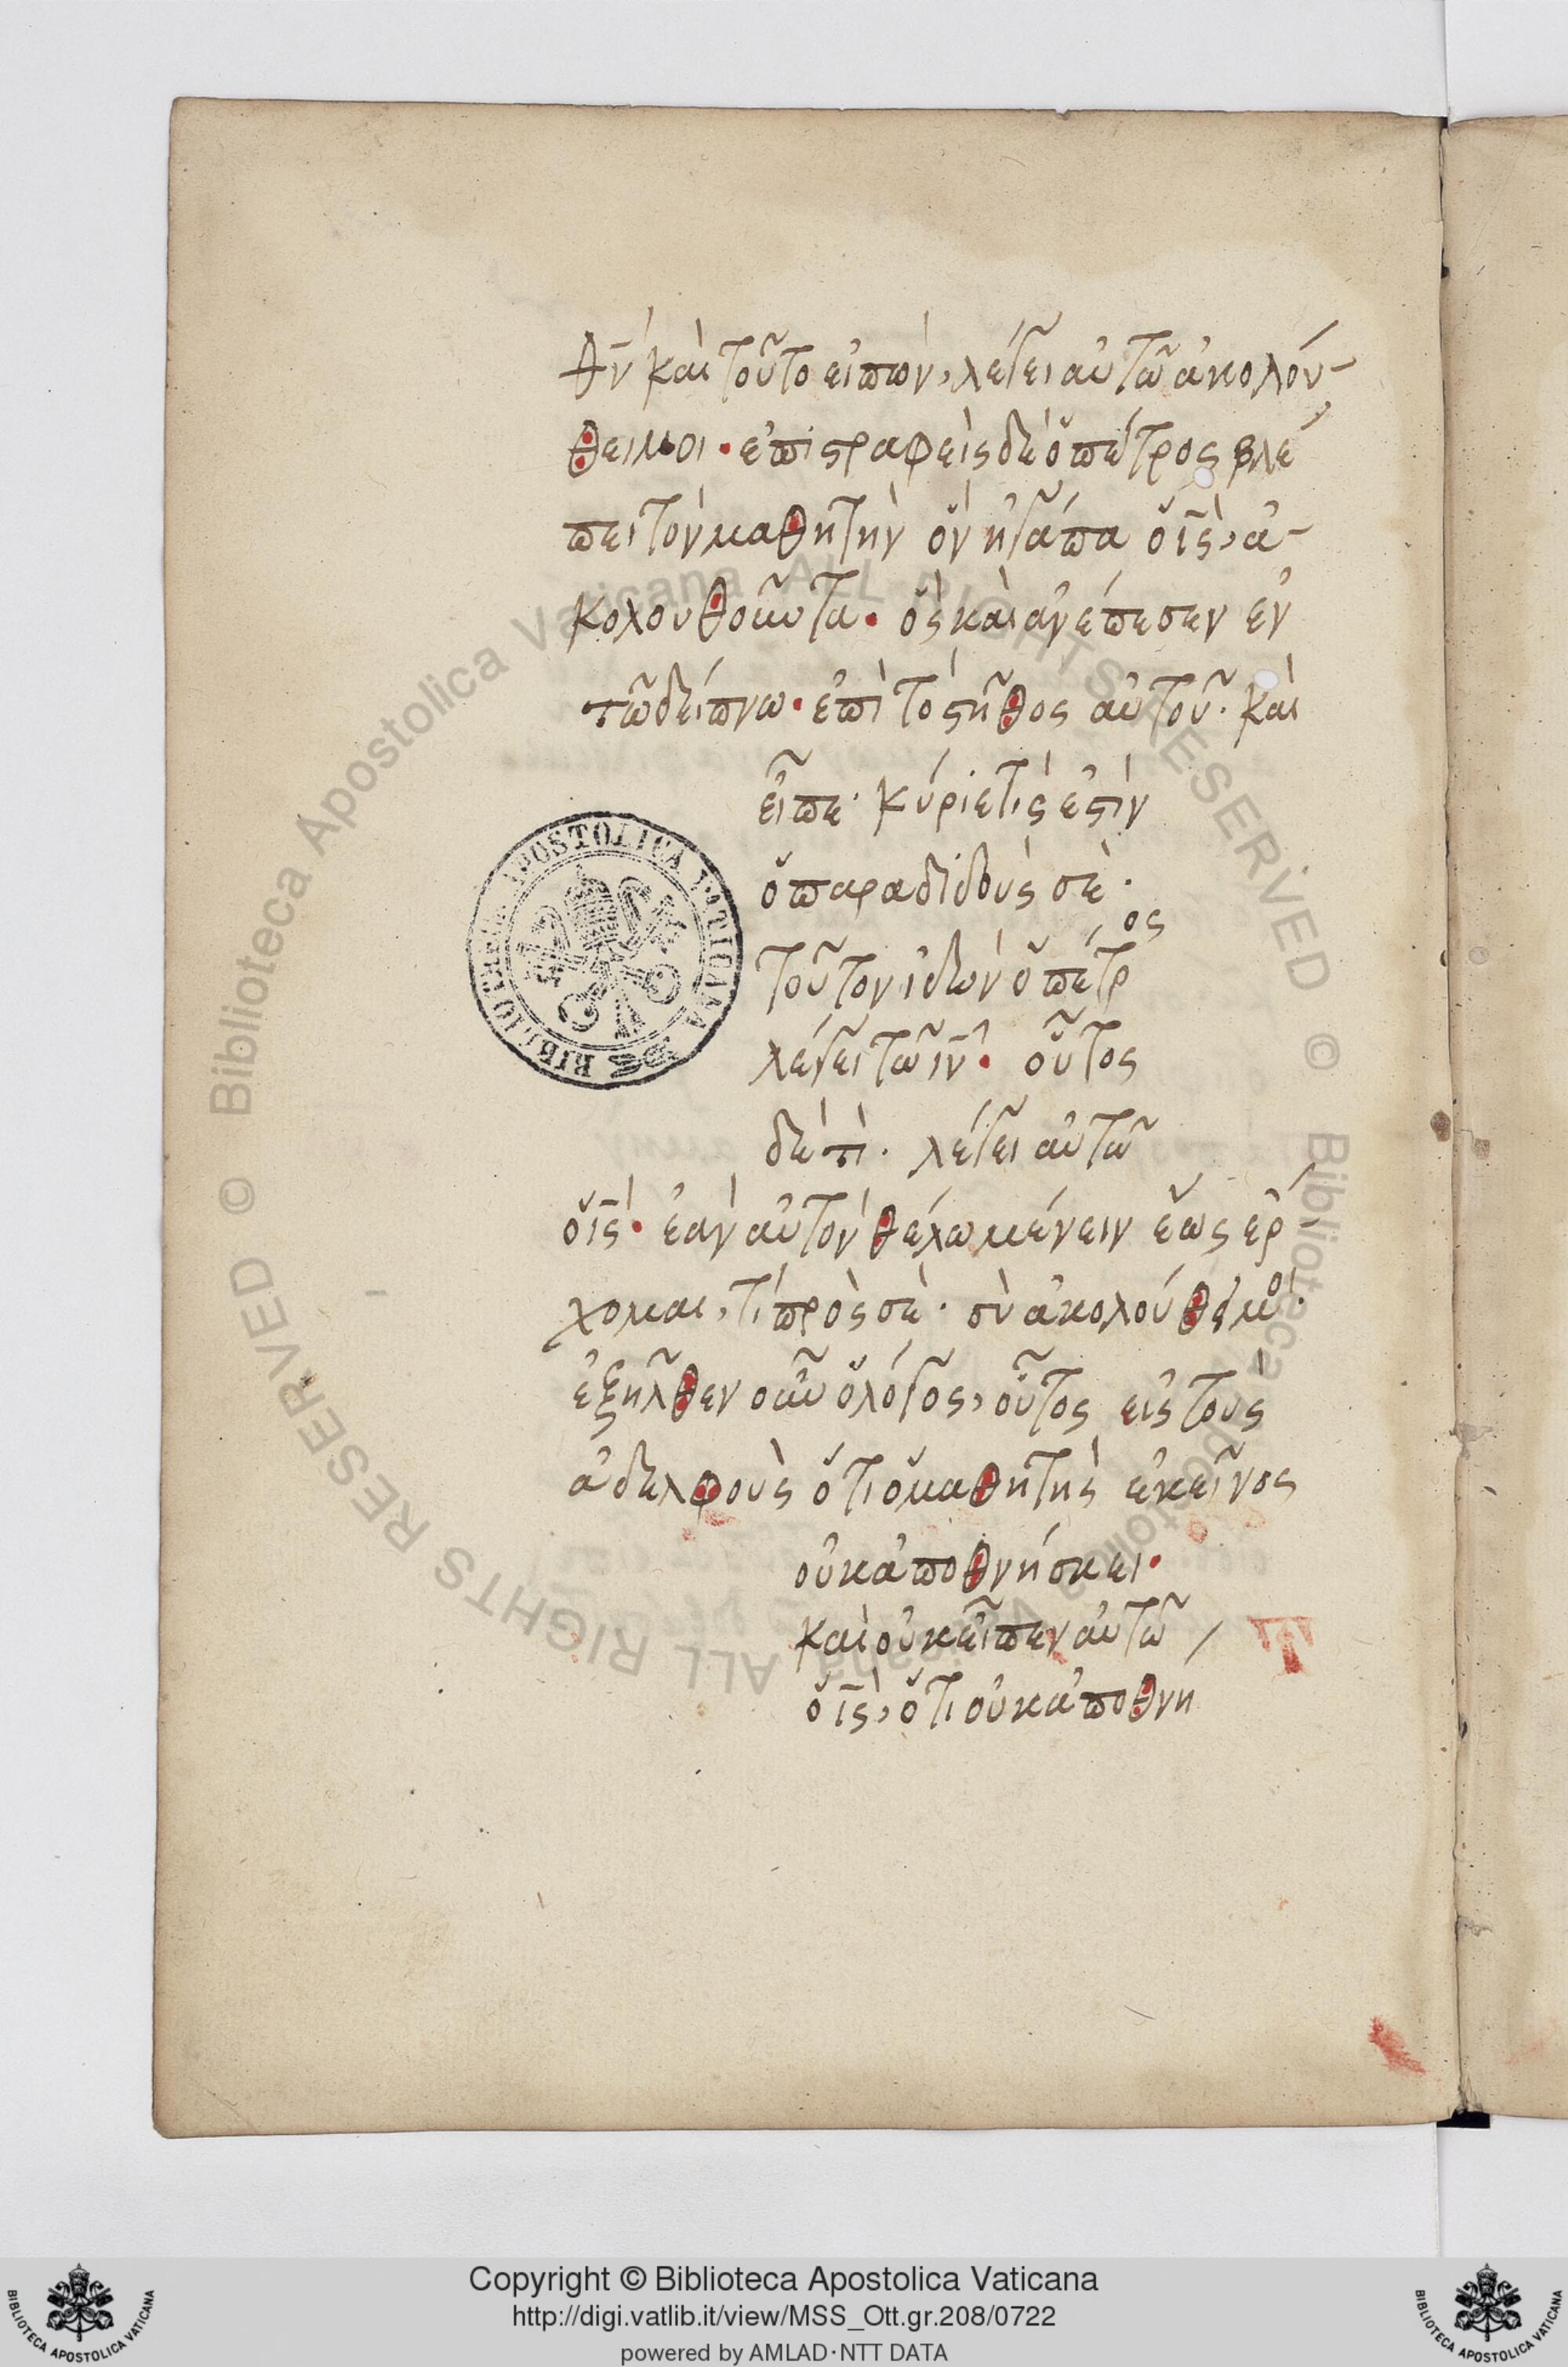 θ̅ν̅ καὶ τοῦτο εἰπὼν, λέγει αὐτῶ ἀκολού-
θει μοι · ἐπιστραφεὶς δὲ ὁ πέτρος βλέ
πει τὸν μαθητὴν ὃν ἠγάπα ὁ ι̅ς̅, ἀ-
κολουθοῦντα · ὃς καὶ ἀνέπεσεν ἐν
τῶ δείπνω · ἐπὶ τὸ στῆθος αὐτοῦ · καὶ
εἶπε · κύριε τίς ἐστιν
ὁ παραδιδούς σε ·
τοῦτον ἰδὼν ὁ πέτρος
λέγει τῶ ι̅υ̅ · οὗτος
δὲ τί · λέγει αὐτῶ
ὁ ι̅ς̅ · ἐὰν αὐτὸν θέλω μένειν ἕως ἔρ-
χομαι, τί πρὸς σέ · σὺ ἀκολούθει μοι ·
ἐξῆλθεν οὖν ὁ λόγος, οὗτος εἰς τοὺς
ἀδελφοὺς ὅτι ὁ μαθητὴς ἐκεῖνος
οὐκ ἀποθνήσκει ·
καὶ οὐκ εἶπεν αὐτῶ
ὁ ι̅ς̅, ὅτι οὐκ ἀποθνη
BIBLIOTECA APOSTOLICA VATICANA
© Biblioteca Apostolica Vaticana ALL RIGHTS RESERVED © Biblioteca Apostolica Vaticana ALL RIGHTS RESERVED
Copyright © Biblioteca Apostolica Vaticana
http://digi.vatlib.it/view/MSS_Ott.gr.208/0722
powered by AMLAD·NTT DATA
BIBLIOTECA APOSTOLICA VATICANA
BIBLIOTECA APOSTOLICA VATICANA